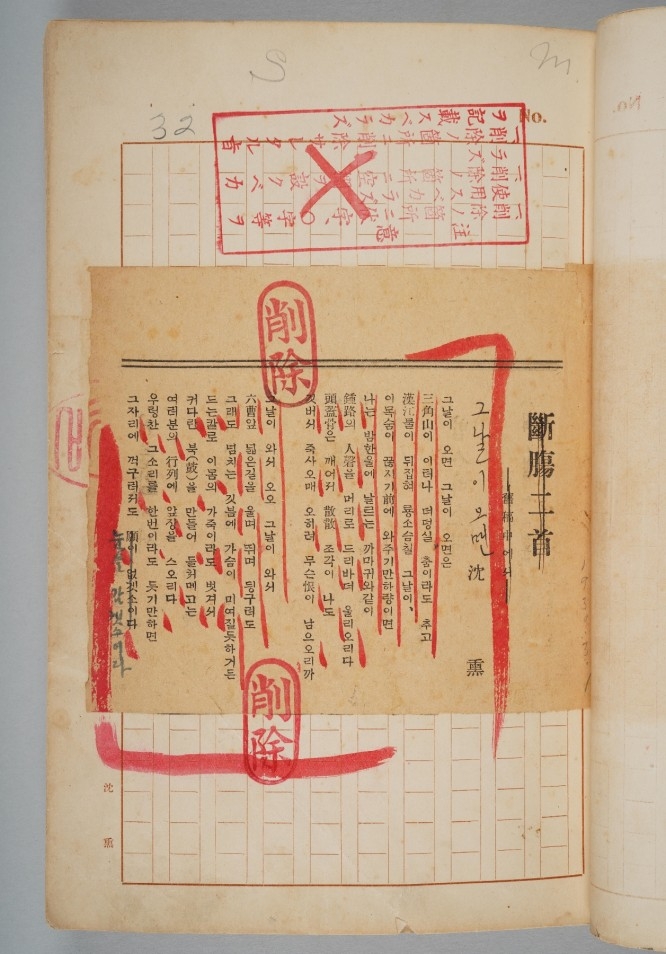 No.
S
m
32
注意
一、削除ノ箇所ニ削除サレタル旨
ヲ記載スベカラズ
削除
斷膓二首
——舊稿中에서——
그날이 오면
沈 熏
그날이 오면 그날이 오면은
三角山이 이러나 더덩실 춤이라도 추고
漢江물이 뒤집혀 룡소슴칠 그날이,
이목숨이 끊지기前에 와주기만하량이면
나는 밤한울에 날르는 까마귀와같이
鍾路의 人磬을 머리로 드리바더 울리오리다
頭蓋骨은 깨어저 散散 조각이 나도
깃버서 죽사오매 오히려 무슨恨이 남으오리까
그날이 와서 오오 그날이 와서
六曹앞 넓은길을 울며 뛰며 딩구러도
그래도 넘치는 깃붐에 가슴이 미여질듯하거든
드는칼로 이몸의 가죽이라도 벗겨서
커다란 북(鼓)을 만들어 들처메고는
여러분의 行列에 앞장을 스오리다
우렁찬 그소리를 한번이라도 듯기만하면
그자리에 꺽구러저도 願이 없겟소이다
눈을 감겟소이다
削除
沈 熏